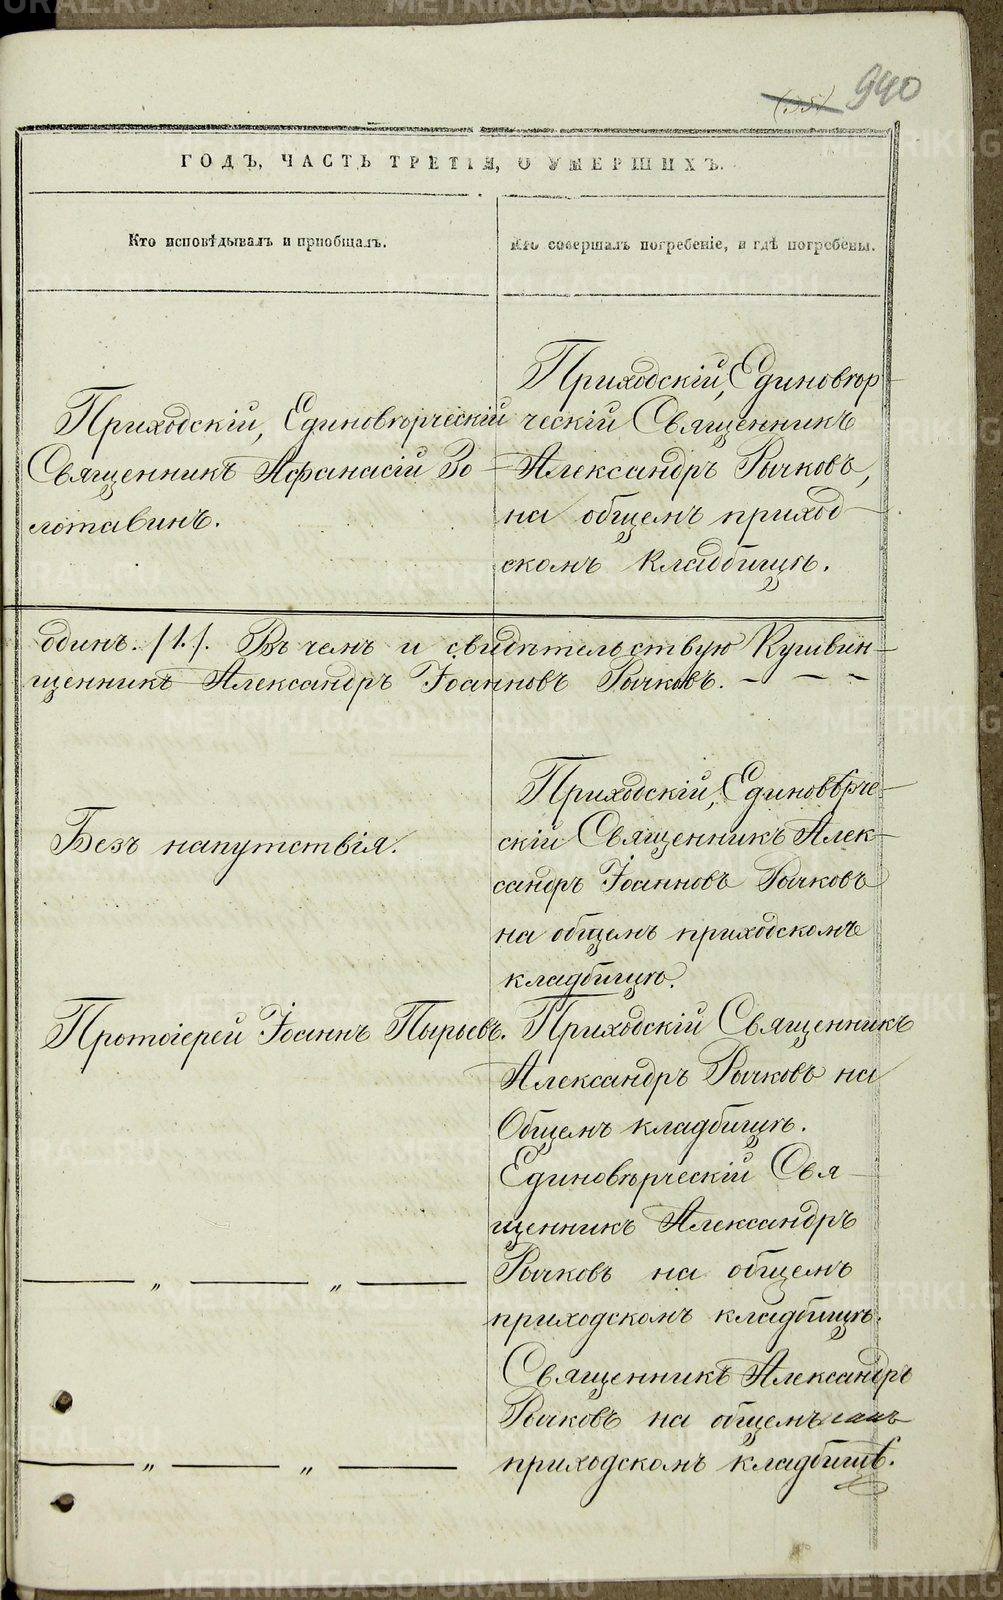 940
ГОДЪ, ЧАСТЬ ТРЕТІЯ, О УМЕРШИХЪ.
Кто исповѣдывалъ и пріобщалъ.
Кто совершалъ погребеніе, и гдѣ погребены.
Приходскій, Единовѣрческій
Священникъ Афанасій Зо-
лотавинъ.
Приходскій, Единовѣр-
ческій Священникъ
Александръ Рычковъ,
на общемъ приход-
скомъ кладбищѣ.
одинъ. /1./. Въ чемъ и свидѣтельствую Кушвин-
щенникъ Александръ Іоанновъ Рычковъ. — — —
Безъ напутствія.
Приходскій, Единовѣрче-
скій Священникъ Алек-
сандръ Іоанновъ Рычковъ
на общемъ приходскомъ
кладбищѣ.
Протоіерей Іоаннъ Пырьевъ.
Приходскій Священникъ
Александръ Рычковъ на
Общемъ кладбищѣ.
— „ — „ —
Единовѣрческій Свя-
щенникъ Александръ
Рычковъ на общемъ
приходскомъ кладбищѣ.
— „ — „ —
Священникъ Александръ
Рычковъ на общемъ
приходскомъ кладбищѣ.
METRIKI.GASO-URAL.RU